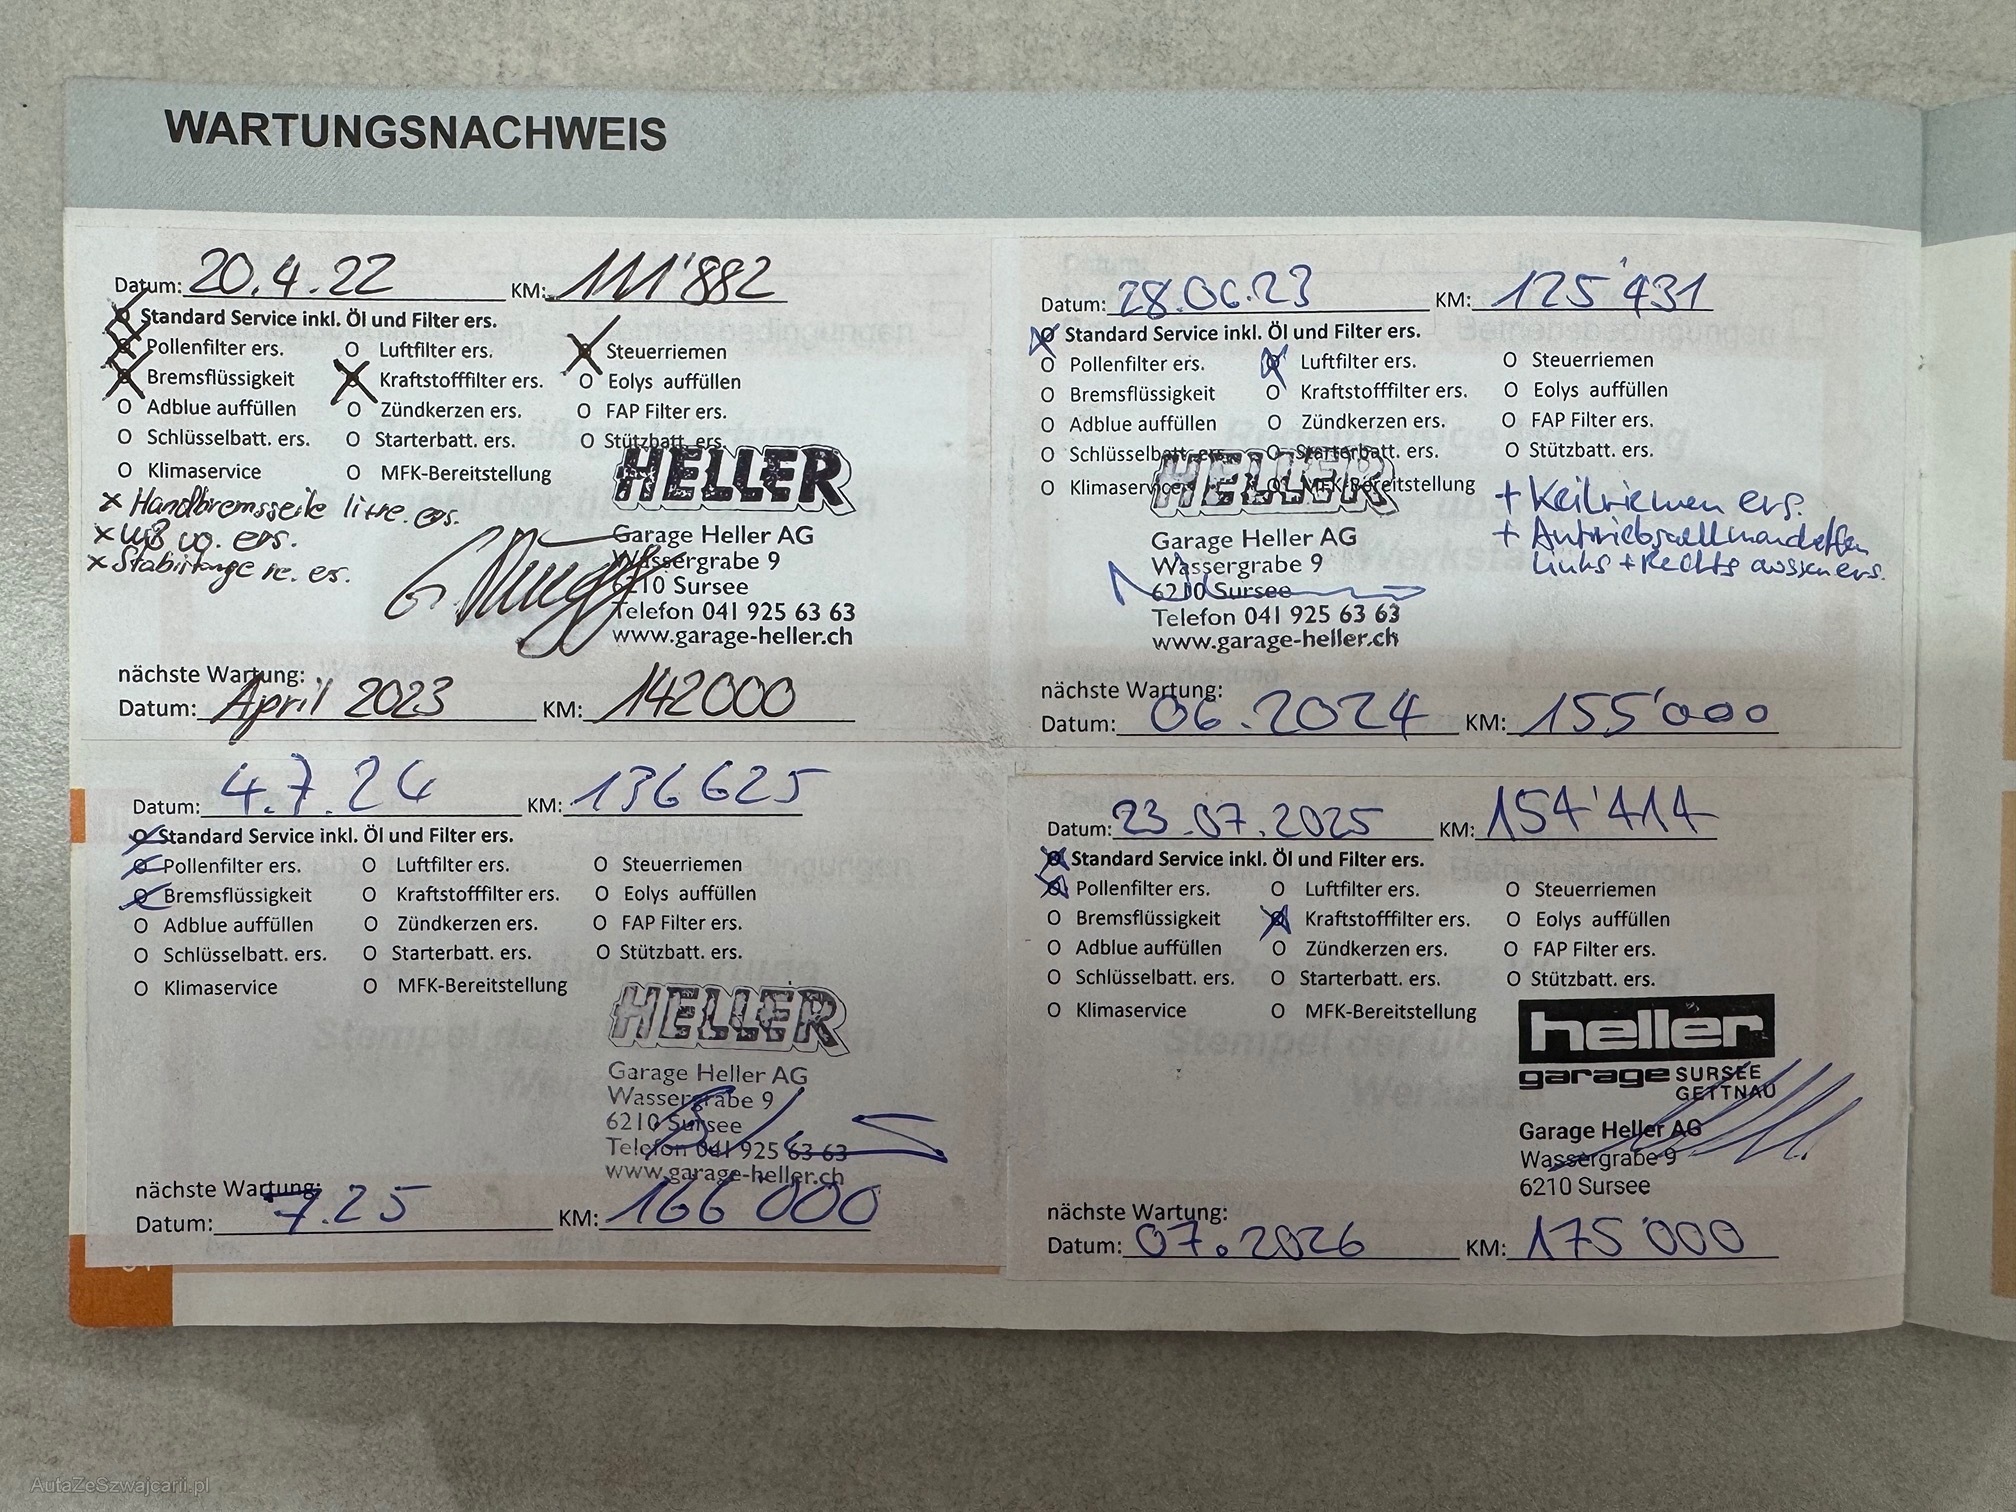 WARTUNGSNACHWEIS
Datum: 20.4.22 KM: 111'882
Standard Service inkl. Öl und Filter ers.
Pollenfilter ers. O Luftfilter ers. Steuerriemen
Bremsflüssigkeit Kraftstofffilter ers. O Eolys auffüllen
O Adblue auffüllen O Zündkerzen ers. O FAP Filter ers.
O Schlüsselbatt. ers. O Starterbatt. ers. O Stützbatt. ers.
O Klimaservice O MFK-Bereitstellung
x Handbremsseile li+re. ers.
x vo. ers.
x Stabistange re. ers.
HELLER
Garage Heller AG
Wassergrabe 9
6210 Sursee
Telefon 041 925 63 63
www.garage-heller.ch
nächste Wartung:
Datum: April 2023 KM: 142000
Datum: 28.06.23 KM: 125'431
Standard Service inkl. Öl und Filter ers.
O Pollenfilter ers. Luftfilter ers. O Steuerriemen
O Bremsflüssigkeit O Kraftstofffilter ers. O Eolys auffüllen
O Adblue auffüllen O Zündkerzen ers. O FAP Filter ers.
O Schlüsselbatt. ers. O Starterbatt. ers. O Stützbatt. ers.
O Klimaservice O MFK-Bereitstellung
+ Keilriemen ers.
+ Antriebswellmanchetten
Links + Rechts aussen ers.
HELLER
Garage Heller AG
Wassergrabe 9
6210 Sursee
Telefon 041 925 63 63
www.garage-heller.ch
nächste Wartung:
Datum: 06.2024 KM: 155'000
Datum: 4.7.24 KM: 136625
Standard Service inkl. Öl und Filter ers.
Pollenfilter ers. O Luftfilter ers. O Steuerriemen
Bremsflüssigkeit O Kraftstofffilter ers. O Eolys auffüllen
O Adblue auffüllen O Zündkerzen ers. O FAP Filter ers.
O Schlüsselbatt. ers. O Starterbatt. ers. O Stützbatt. ers.
O Klimaservice O MFK-Bereitstellung
HELLER
Garage Heller AG
Wassergrabe 9
6210 Sursee
Telefon 041 925 63 63
www.garage-heller.ch
nächste Wartung:
Datum: 7.25 KM: 166'000
Datum: 23.07.2025 KM: 154'414
Standard Service inkl. Öl und Filter ers.
Pollenfilter ers. O Luftfilter ers. O Steuerriemen
O Bremsflüssigkeit Kraftstofffilter ers. O Eolys auffüllen
O Adblue auffüllen O Zündkerzen ers. O FAP Filter ers.
O Schlüsselbatt. ers. O Starterbatt. ers. O Stützbatt. ers.
O Klimaservice O MFK-Bereitstellung
heller
garage SURSEE
GETTNAU
Garage Heller AG
Wassergrabe 9
6210 Sursee
nächste Wartung:
Datum: 07.2026 KM: 175'000
AutaZeSzwajcarii.pl